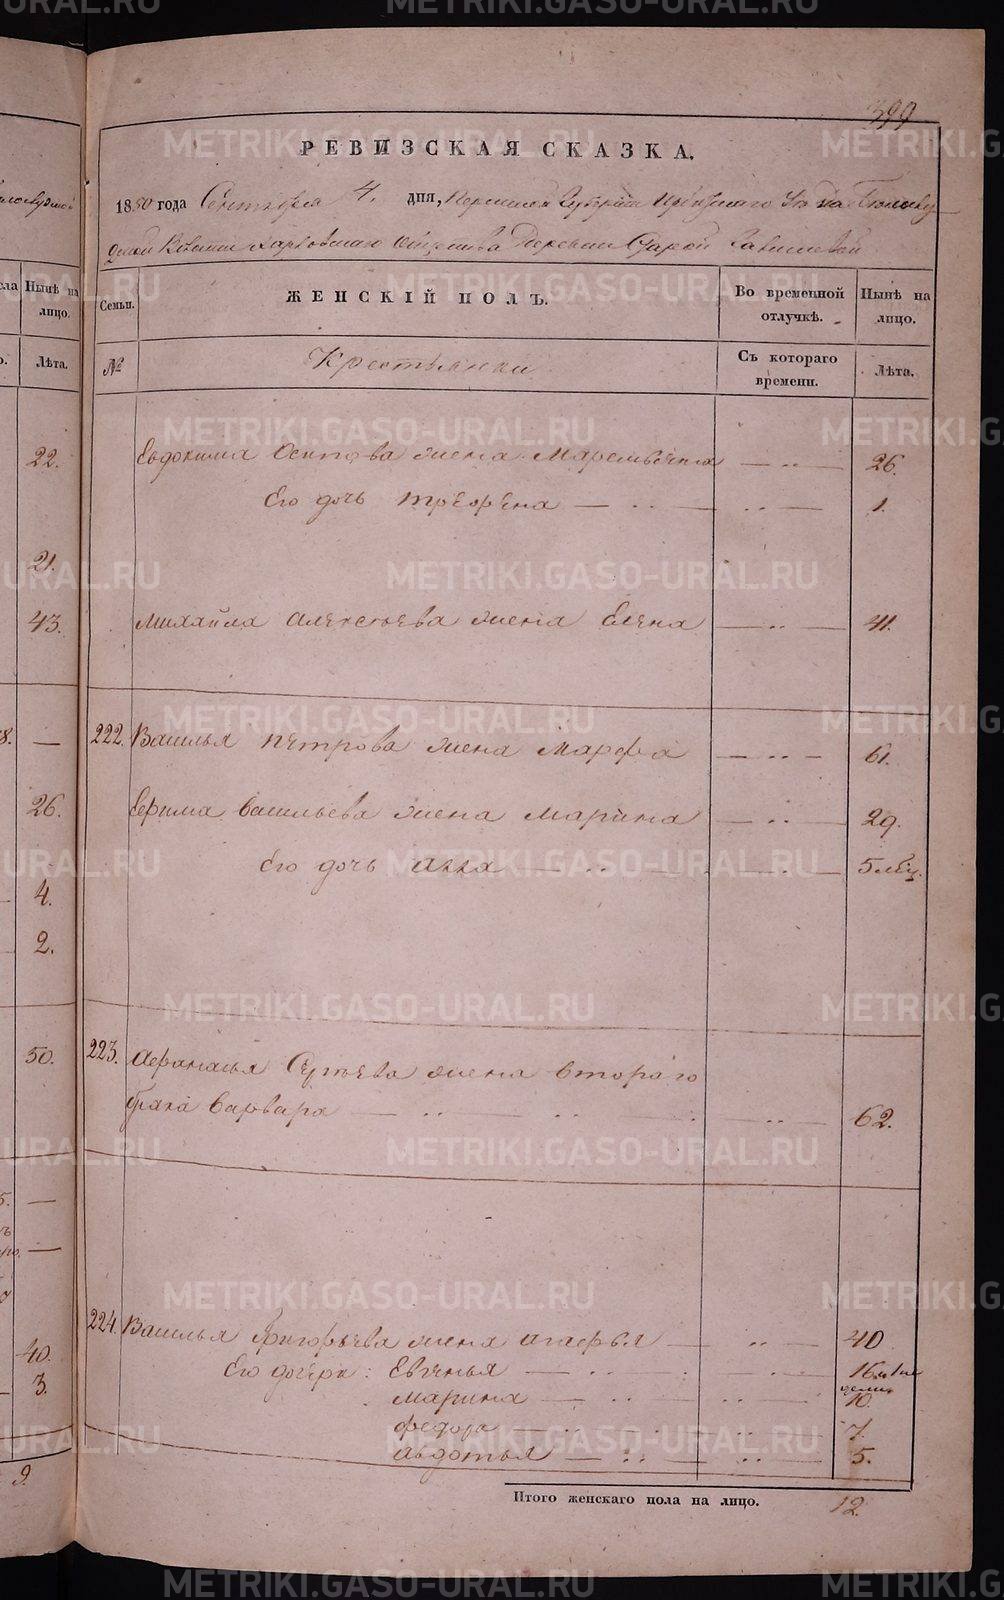 399
РЕВИЗСКАЯ СКАЗКА.
1850 года Сентября 4. дня, Пермской Губерніи Ирбитскаго Уѣзда
Волости Харловскаго Общества Деревни Старой
Семьи. ЖЕНСКІЙ ПОЛЪ. Во временной отлучкѣ. Нынѣ на лицо.
№ Крестьянки Съ котораго времени. Лѣта.
Евдокима Осипова жена — " — 26.
Его дочь — " — 1.
Михайла Алексѣева жена Елена — " — 41.
222. Василья Петрова жена Марфа — " — 61.
Ефима Васильева жена Марина — " — 29.
Его дочь Анна — " — 5 мѣц.
223. Афанасья Сергѣева жена втораго
брака Варвара — " — 62.
224. Василья Григорьева жена Агафья — " — 40
Его дочери: Евгенья — " — 16
Марина — " — 10.
Федора — " — 7.
Авдотья — " — 5.
Итого женскаго пола на лицо. 12.
Нынѣ на лицо.
Лѣта.
22.
21.
43.
—
26.
4.
2.
50.
—
—
40.
3.
9.
METRIKI.GASO-URAL.RU